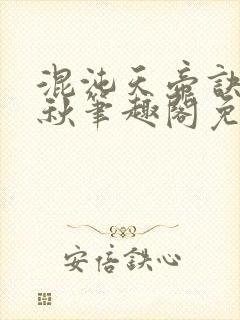 混沌天帝訣
秋筆趣閣免
安倍鉄心